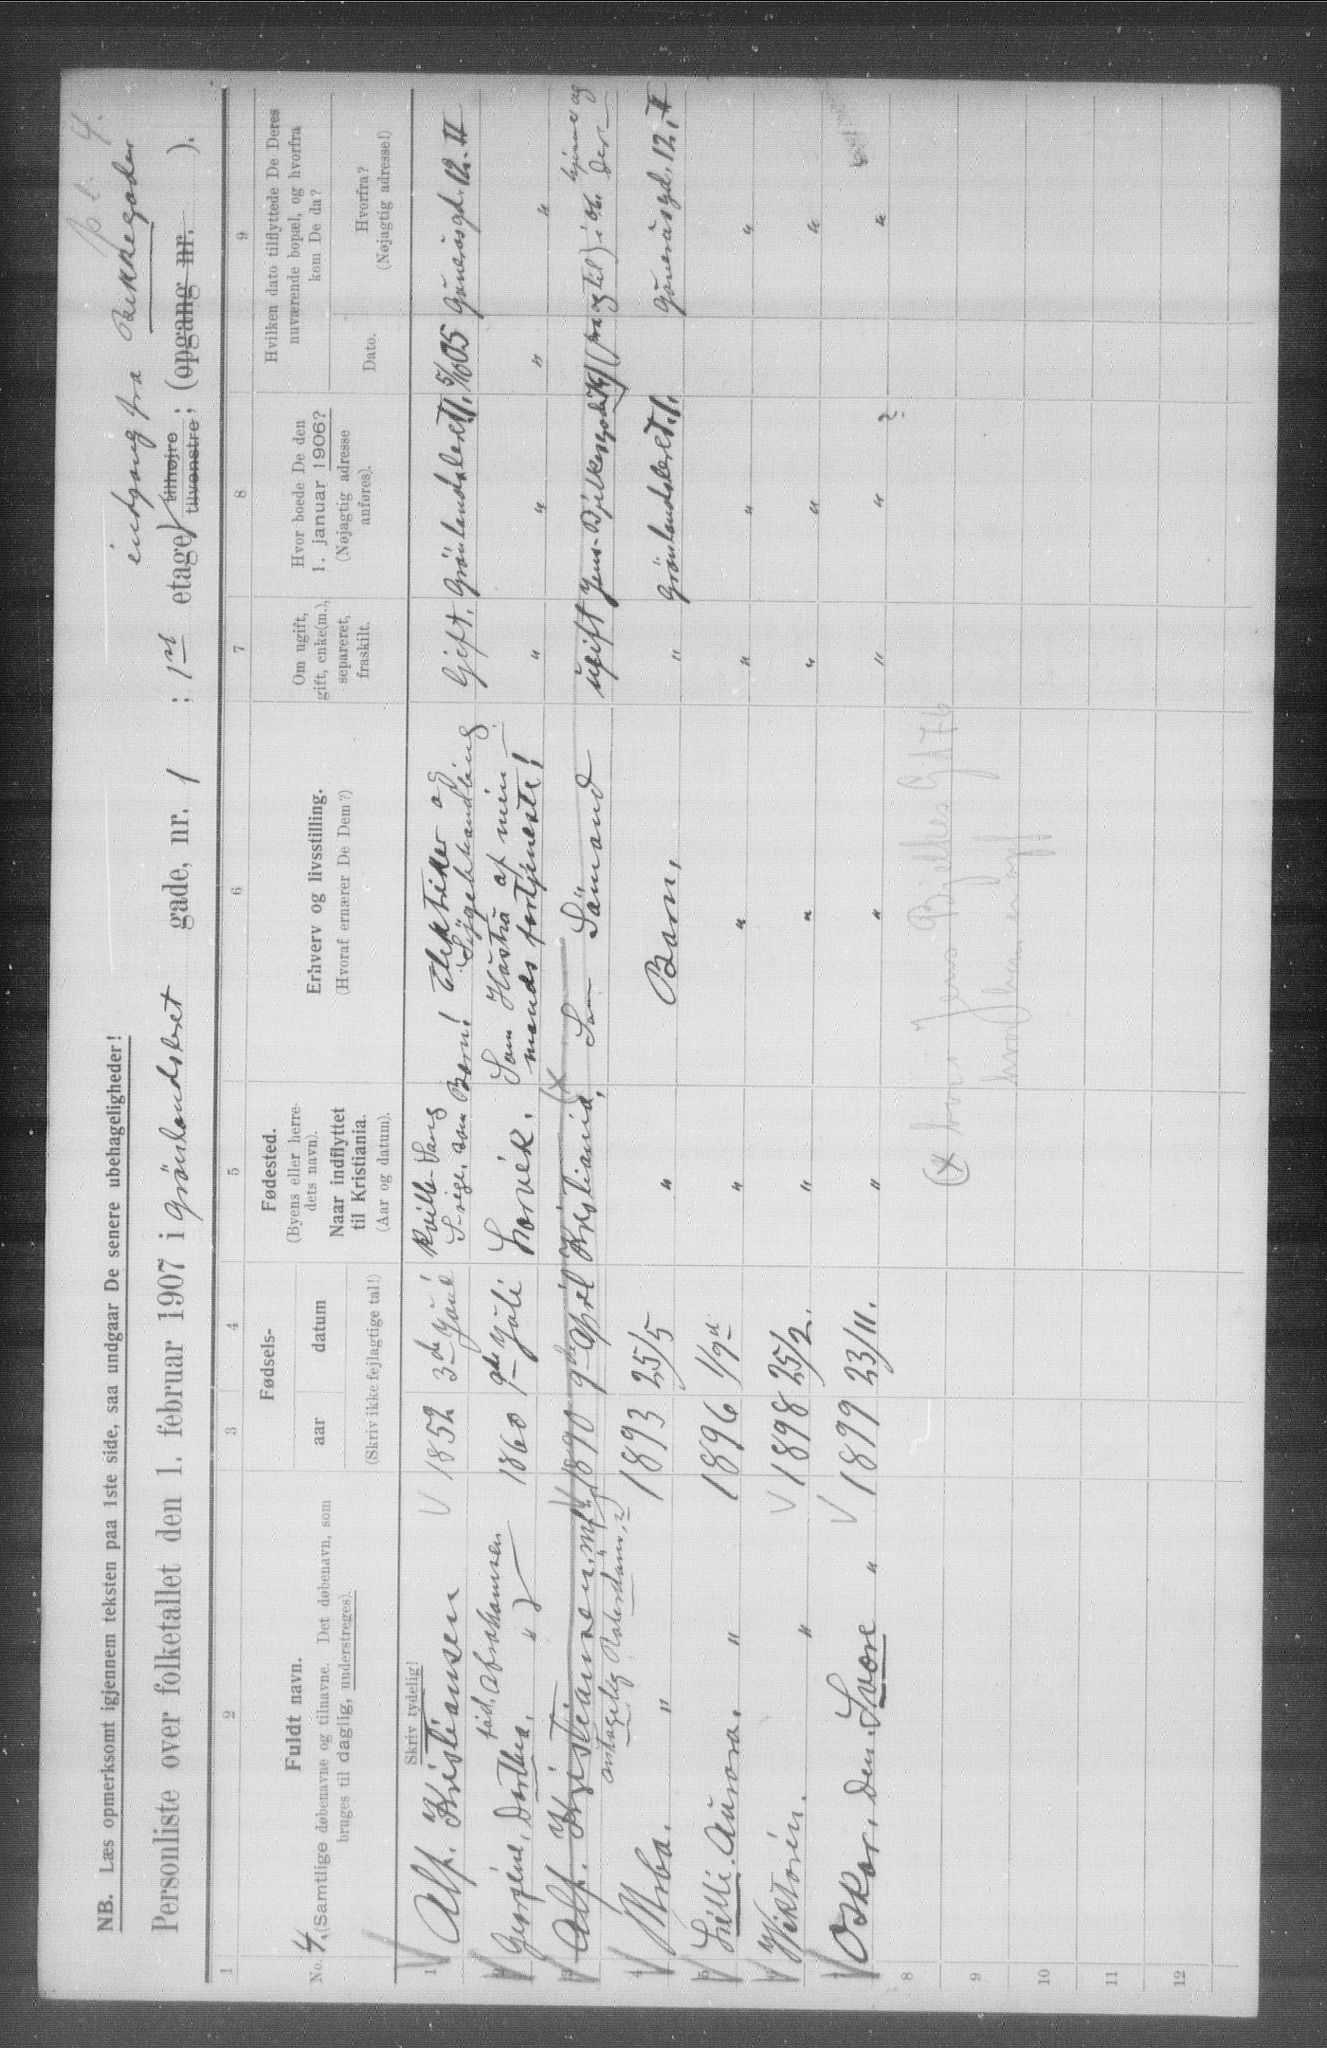 NB. Læs opmerksomt igjennem teksten paa 1ste side, saa undgaar De senere ubehageligheder!
indgang fra Rikkegaden
Personliste over folketallet den 1. februar 1907 i Grönlandsleret gade, nr. 1 ; 1st etage tilhøjre tilvenstre; (opgang nr. ).
1 2 3 4 5 6 7 8 9
No. 4. Fuldt navn.
(Samtlige døbenavne og tilnavne. Det døbenavn, som
bruges til daglig, understreges).
Fødsels-
aar datum
(Skriv ikke fejlagtige tal!)
Fødested.
(Byens eller herre-
dets navn).
Naar indflyttet
til Kristiania.
(Aar og datum).
Erhverv og livsstilling.
(Hvoraf ernærer De Dem?)
Om ugift,
gift, enke(m.),
separeret,
fraskilt.
Hvor boede De den
1. januar 1906?
(Nøjagtig adresse
anføres).
Hvilken dato tilflyttede De Deres
nuværende bopæl, og hvorfra
kom De da?
Dato.
Hvorfra?
(Nøjagtig adresse!)
Skriv tydelig!
1 Alf. Kristiansen 1852 3de Juni Kville Sverige. som Barn! Elektiker og Gift. Grönlandsleret 1, 5/10 05 Gunerusgd. 12. II
2 född Abrahamsen Dorthea. " 1860 9de Juli Larvik. Som Hustru af min mands fortjeneste! " " " "
3 Alf. Kristiansen. 1890 9de April Kristiania, Som Sömand ugift Jens Bjelkesgade
antagelig
4 " 1893 25/5 " Barn, " Grönlandsleret. 1, Gunerusgd. 12, II
5 Lilli. Aurora. " 1896 1/9 " " " " "
6 Viktoria. " 1898 25/2. " " " " "
7 Oskar. Den. Store " 1899 23/11. " " " " ? "
8
(x bor i Jens Bjelkes G 17 b
9
10
11
12